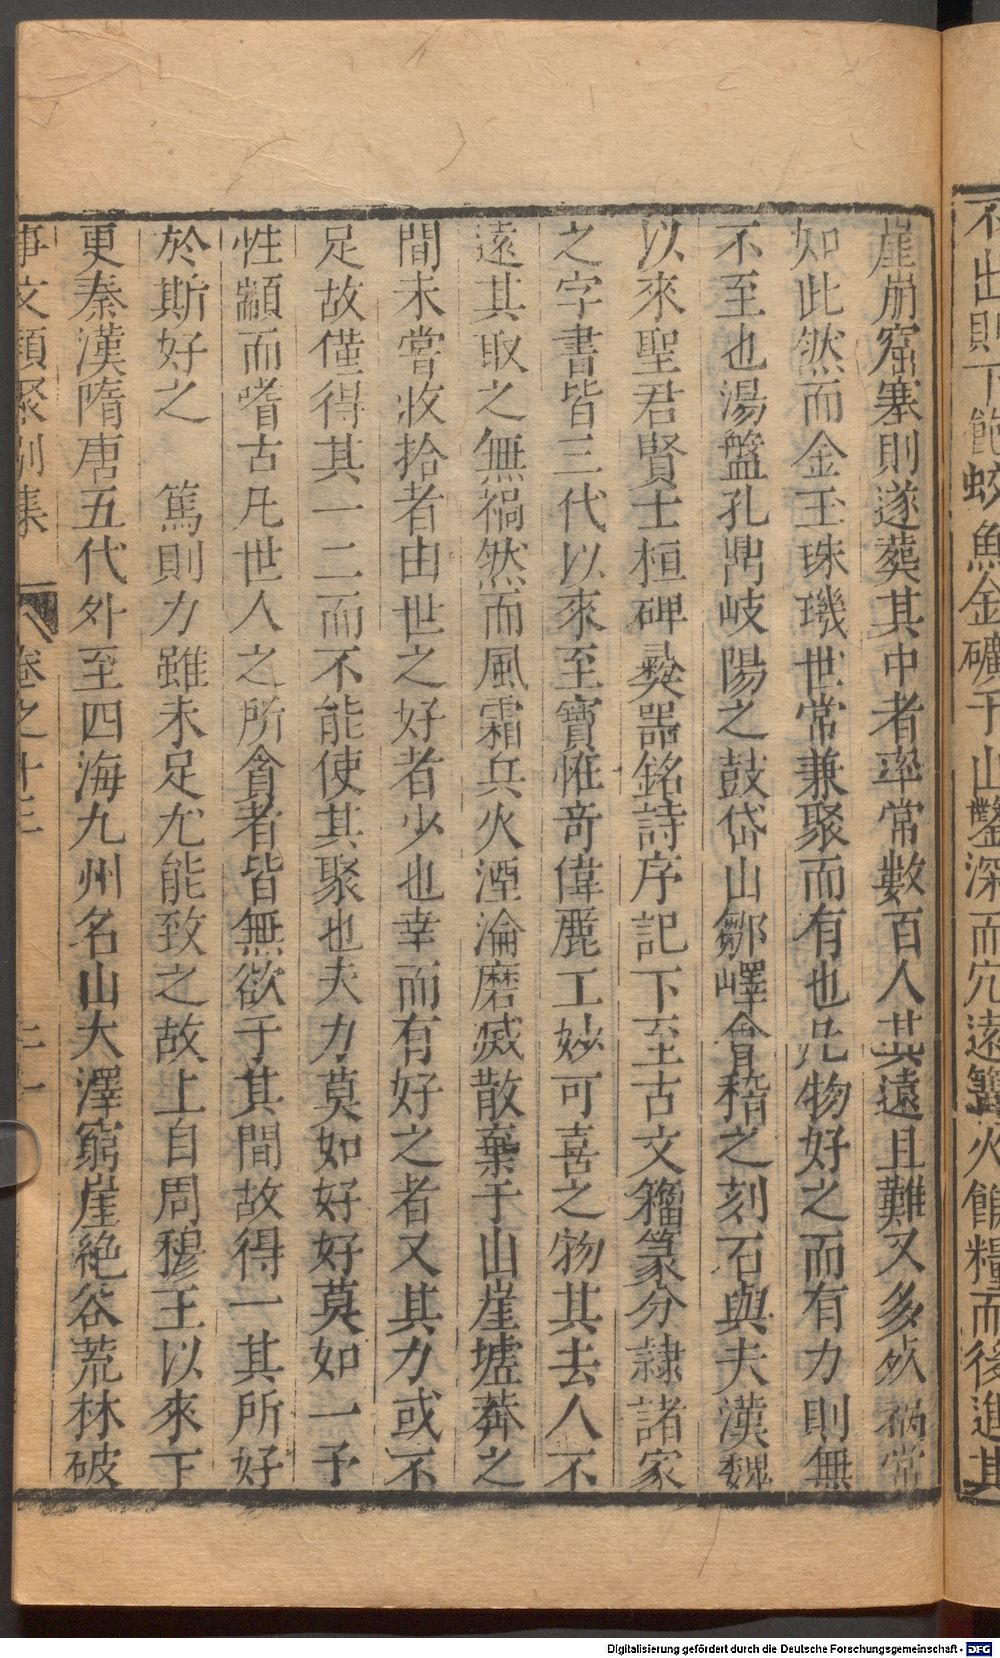 不出則下飽蛟魚金礦于山鑿深而穴遠篝火餱糧而後進其
崖崩窟塞則遂葬其中者率常數百人其遠且難又多死禍常
如此然而金玉珠璣世常兼聚而有也凡物好之而有力則無
不至也湯盤孔鼎岐陽之鼓岱山鄒嶧會稽之刻石與夫漢魏
以來聖君賢士桓碑彝器銘詩序記下至古文籀篆分隷諸家
之字書皆三代以來至寶恠竒偉麗工妙可喜之物其去人不
遠其取之無禍然而風霜兵火湮淪磨滅散棄于山崖墟莽之
間未嘗收拾者由世之好者少也幸而有好之者又其力或不
足故僅得其一二而不能使其聚也夫力莫如好好莫如一予
性顓而嗜古凡世人之所貪者皆無欲于其間故得一其所好
於斯好之　篤則力雖未足尤能致之故上自周穆王以來下
更秦漢隋唐五代外至四海九州名山大澤窮崖絶谷荒林破
事文類聚別集 卷之十三
Digitalisierung gefördert durch die Deutsche Forschungsgemeinschaft - DFG